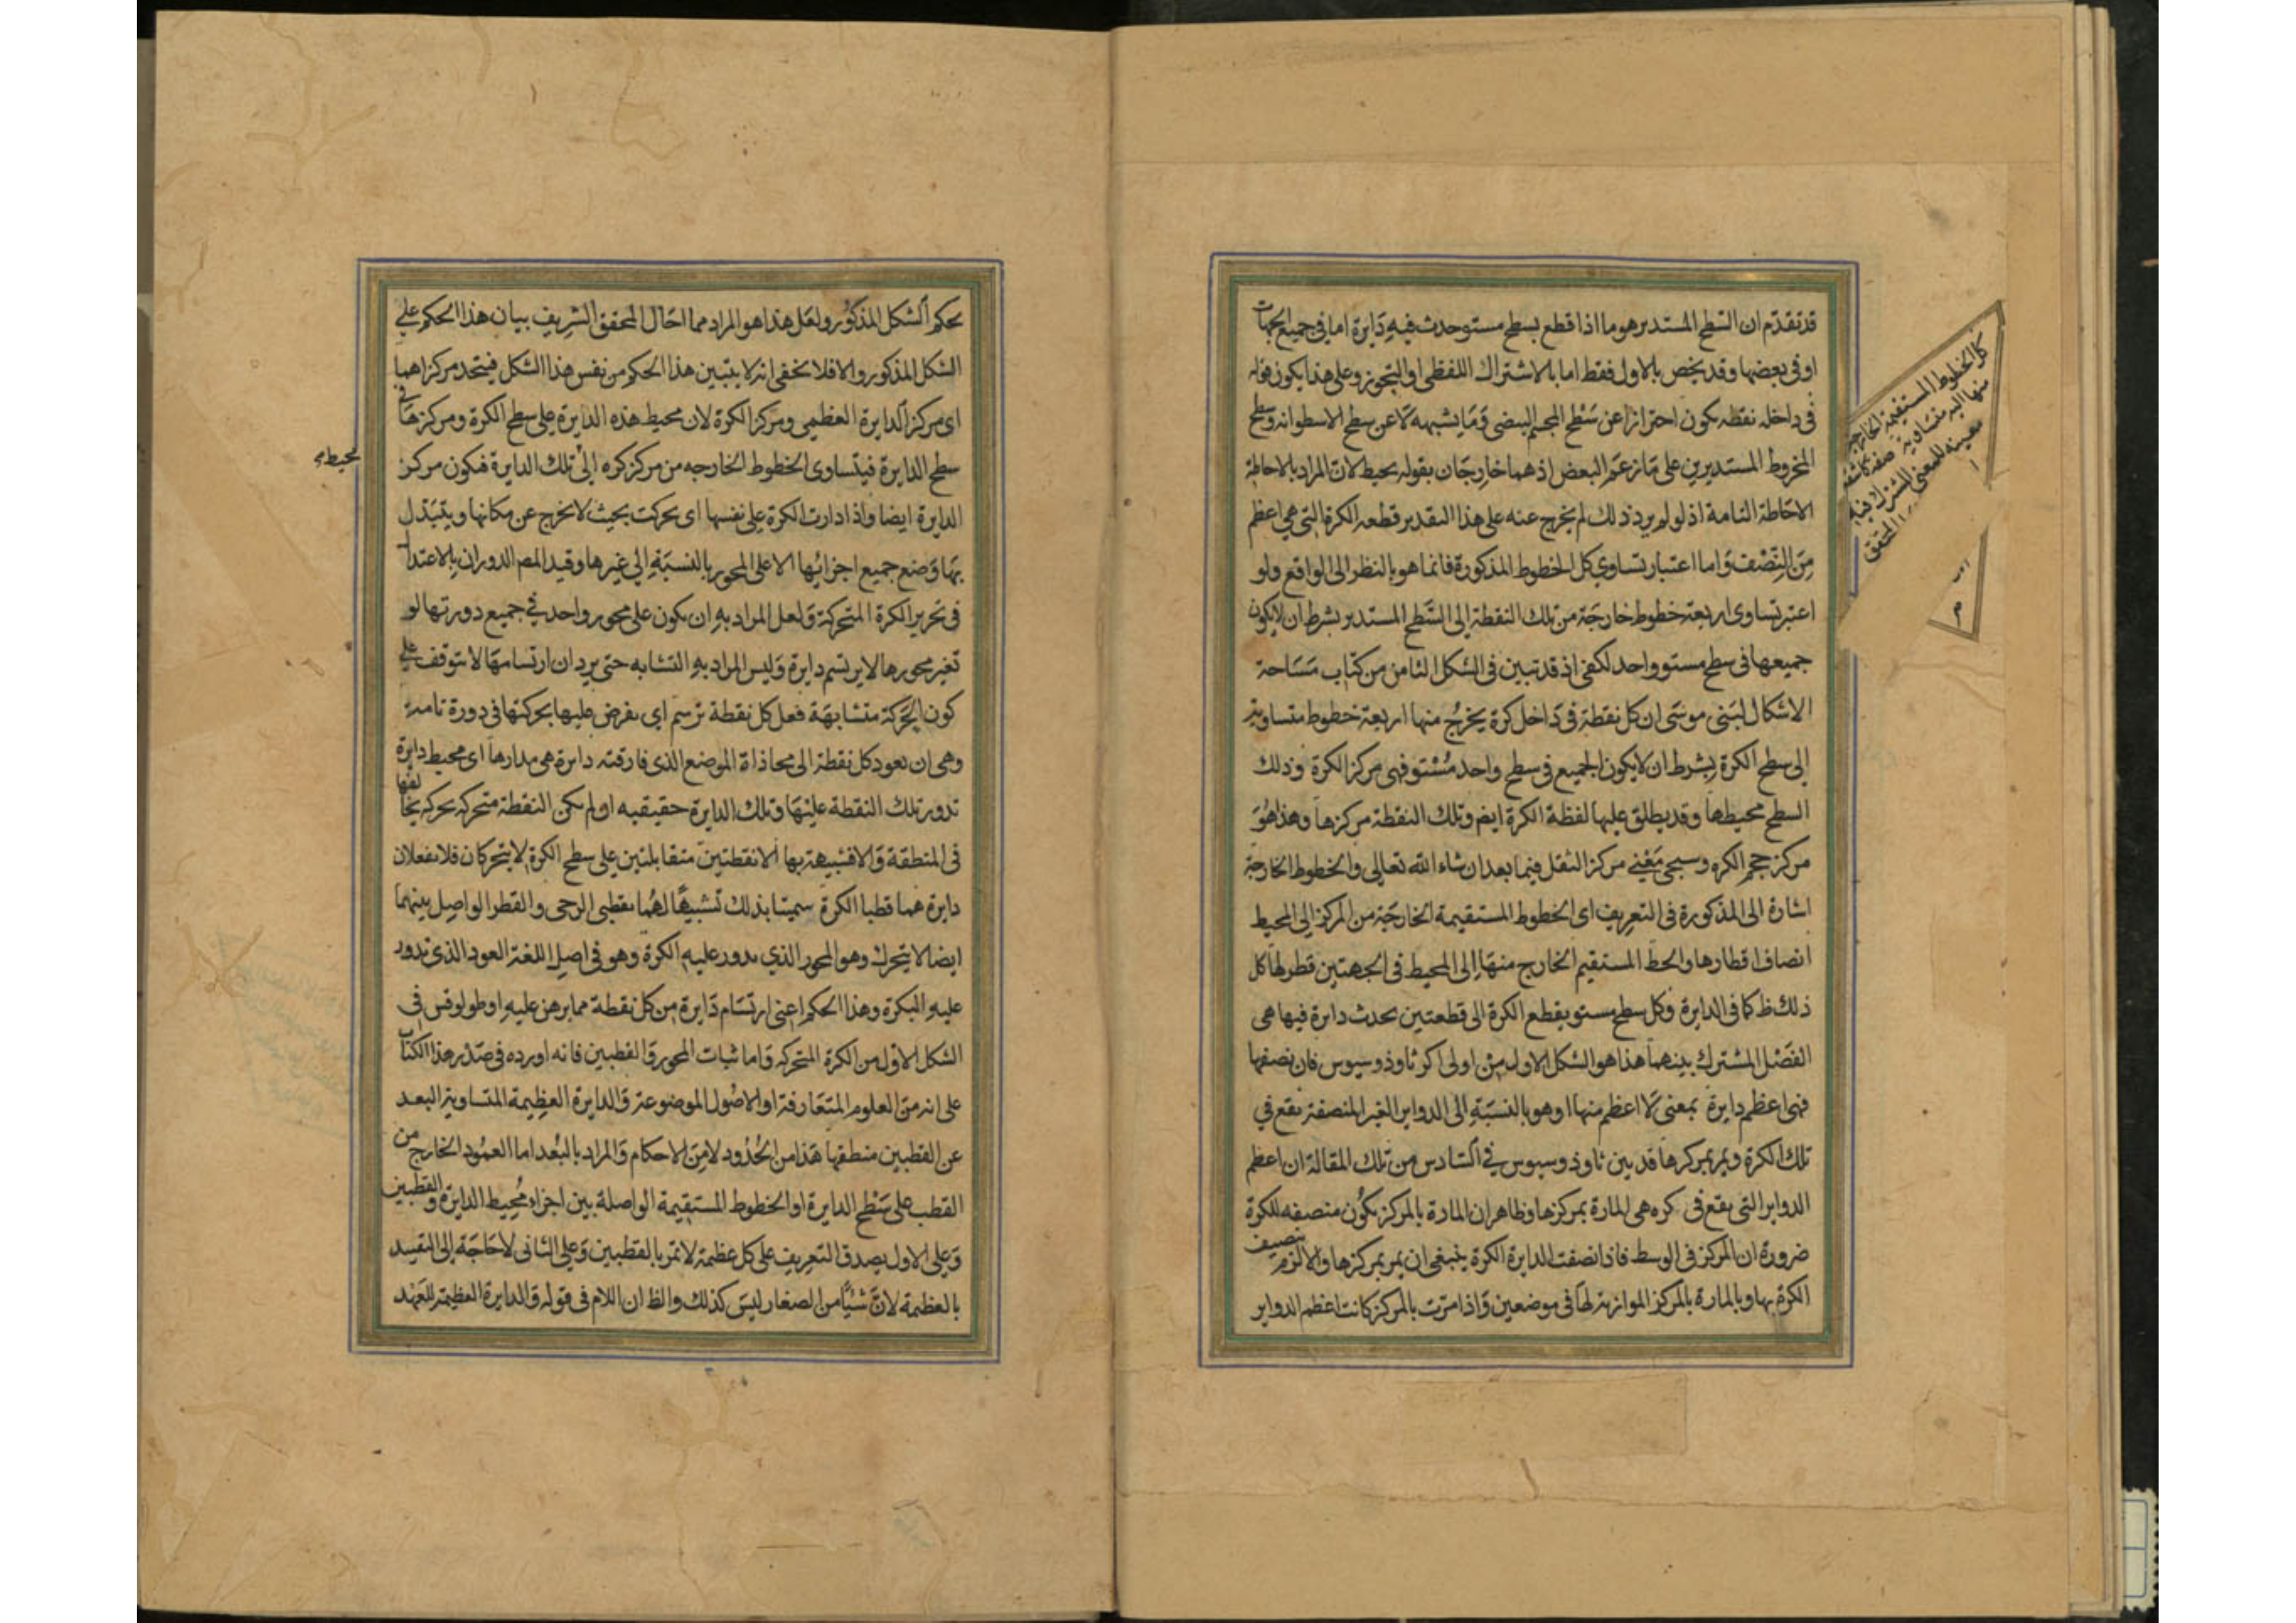 قد تقدم ان السطح المستدير هو ما اذا قطع بسطح مستو حدث فيه دايرة اما فى جميع الجهات
او فى بعضها وقد يخص بالاول فقط اما بالاشتراك اللفظى او التجوز وعلى هذا يكون قوله
فى داخله نقطه يكون احترازا عن سطح المجسم البيضى وما يشبهه لا عن سطح الاسطوانه وسطح
المخروط المستديرين على ما زعم البعض اذ هما خارجان بقوله يحيط لان المراد بالاحاطة
الاحاطة التامة اذ لو لم يرد ذلك لم يخرج عنه على هذا التقدير قطعه الكرة التى هى اعظم
من النصف واما اعتبار تساوى كل الخطوط المذكورة فانما هو بالنظر الى الواقع ولو
اعتبر تساوى اربعة خطوط خارجة من تلك النقطة الى السطح المستدير بشرط ان لا يكون
جميعها فى سطح مستو واحد لكفى اذ قد تبين فى الشكل الثامن من كتاب مساحة
الاشكال لبنى موسى ان كل نقطة فى داخل كرة يخرج منها اربعة خطوط متساوية
الى سطح الكرة بشرط ان لا يكون الجميع فى سطح واحد مستو فهى مركز الكرة وذلك
السطح محيطها وقد يطلق عليها لفظة الكرة ايضا وتلك النقطة مركزها وهذا هو
مركز حجم الكره وسيجى معنى مركز الثقل فيما بعد ان شاء الله تعالى والخطوط الخارجة
اشارة الى المذكورة فى التعريف اى الخطوط المستقيمة الخارجة من المركز الى المحيط
انصاف اقطارها والخط المستقيم الخارج منها الى المحيط فى الجهتين قطر لها كل
ذلك ظ كما فى الدايرة وكل سطح مستو يقطع الكرة الى قطعتين يحدث دايرة فيها هى
الفصل المشترك بينهما هذا هو الشكل الاول من اولى اكر ثاوذوسيوس فان نصفها
فهى اعظم دايرة بمعنى لا اعظم منها او هو بالنسبة الى الدواير الغير المنصفة تقع فى
تلك الكرة ويمر بمركزها قد بين ثاوذوسيوس فى السادس من تلك المقالة ان اعظم
الدواير التى يقع فى كره هى المارة بمركزها وظاهر ان المارة بالمركز يكون منصفه للكرة
ضرورة ان المركز فى الوسط فاذا نصفت الدايرة الكرة ينبغى ان يمر بمركزها والا لزم تنصيف
الكرة بها وبالمارة بالمركز الموازية لها فى موضعين واذا مرت بالمركز كانت اعظم الدواير
كل الخطوط المستقيمة الخارجة
منها اليه متساوية صفة كاشفة
معينة للمعنى
المحقق
بحكم الشكل المذكور ولعل هذا هو المراد مما احال المحقق الشريف بيان هذا الحكم على
الشكل المذكور والا فلا يخفى انه لا يتبين هذا الحكم من نفس هذا الشكل فيتحد مركزاهما
اى مركز الدايرة العظمى ومركز الكرة لان محيط هذه الدايرة على سطح الكرة ومركزها فى
سطح الدايرة فيتساوى الخطوط الخارجه من مركز كره الى تلك الدايرة فيكون مركز
محيط
الدايرة ايضا واذا دارت الكرة على نفسها اى تحركت بحيث لا يخرج عن مكانها ويتبدل
بها وضع جميع اجزائها الا على المحور بالنسبة الى غيرها وقيد المص الدوران بالاعتدال
فى تحرير الكرة المتحركة ولعل المراد به ان يكون على محور واحد فى جميع دورتها لو
تغير محورها لا يرتسم دايرة وليس المراد به التشابه حتى يرد ان ارتسامها لا يتوقف على
كون الحركة متشابهة فعل كل نقطة ترسم اى يفرض عليها بحركتها فى دورة تامة
وهى ان يعود كل نقطة الى محاذاة الموضع الذى فارقته دايرة هى مدارها اى محيط دايرة
تدور تلك النقطة عليها وتلك الدايرة حقيقيه او لم يكن النقطة متحركه بحركه يخالفها
فى المنطقة والا فشبيهة بها الا نقطتين متقابلتين على سطح الكرة لا يتحركان فلا يفعلان
دايرة هما قطبا الكرة سميتا بذلك تشبيها لهما بقطبى الرحى والقطر الواصل بينهما
ايضا لا يتحرك وهو المحور الذى يدور عليه الكرة وهو فى اصل اللغة العود الذى تدور
عليه البكرة وهذا الحكم اعنى ارتسام دايرة من كل نقطة مما برهن عليه اوطولوقس فى
الشكل الاول من الكرة المتحركه واما ثبات المحور والقطبين فانه اورده فى صدر هذا الكتاب
على انه من العلوم المتعارفة او الاصول الموضوعة والدايرة العظيمة المتساوية البعد
عن القطبين منطقتها هذا من الحدود لا من الاحكام والمراد بالبعد اما العمود الخارج من
القطب على سطح الدايرة او الخطوط المستقيمة الواصلة بين اجزاء محيط الدايرة والقطبين
وعلى الاول يصدق التعريف على كل عظيمة لا تمر بالقطبين وعلى الثانى لا حاجة الى التقييد
بالعظيمة لان شيئا من الصغار ليس كذلك والظ ان اللام فى قوله والدايرة العظيمة للعهد